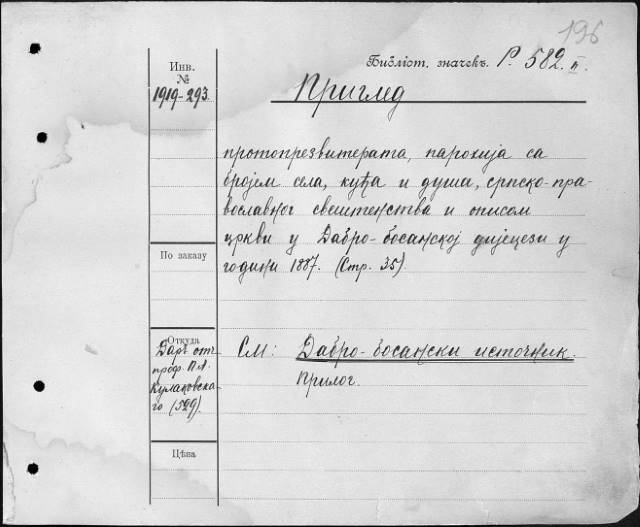 196
Библіот. значекъ. Р. 582 II.
Инв.
№
1919-293.
Приглед
протопрезвитерата, парохија са
бројем села, кућа и душа, српско-пра-
вославног свештенства и описом
цркви у Дабро-босанској дијецези у
години 1887. (Стр. 35).
По заказу
Откуда
Даръ отъ
проф. П.А.
Кулаковска-
го (529).
См: Дабро-босански источник.
Прилог.
Цѣна